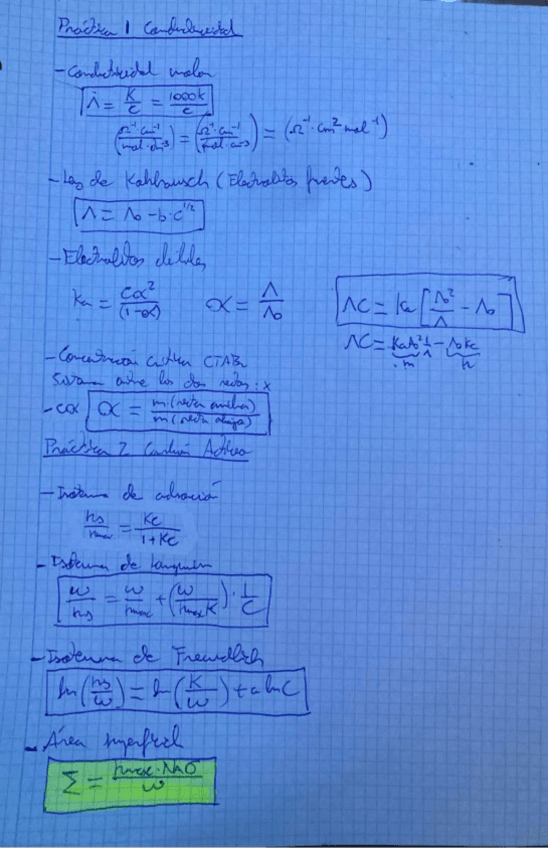 Práctica 1 Conductividad
- Conductividad molar
Λ = K/C = 1000K/C
(Ω⁻¹·cm⁻¹/mol·dm⁻³) = (Ω⁻¹·cm⁻¹/mol·cm⁻³) = (Ω⁻¹·cm² mol⁻¹)
- Ley de Kohlrausch (Electrolitos fuertes)
Λ = Λo - b·c^1/2
- Electrolitos débiles
Ka = Cα²/(1-α) α = Λ/Λo
ΛC = Ka [Λo²/Λ - Λo]
ΛC = KaΛo² 1/Λ - ΛoKa
m n
- Concentración crítica CTABr
Sistema entre las dos rectas: x
α = m(recta arriba)/m(recta abajo)
Práctica 2 Carbón Activo
- Isoterma de
ns/nmax = KC/1+KC
- Isoterma de Langmuir
w/ns = w/nmax + (w/nmaxK)·1/C
- Isoterma de Freundlich
ln(ns/w) = ln(K/w) + a lnC
- Área superficial
Σ = nmax·NAσ/w